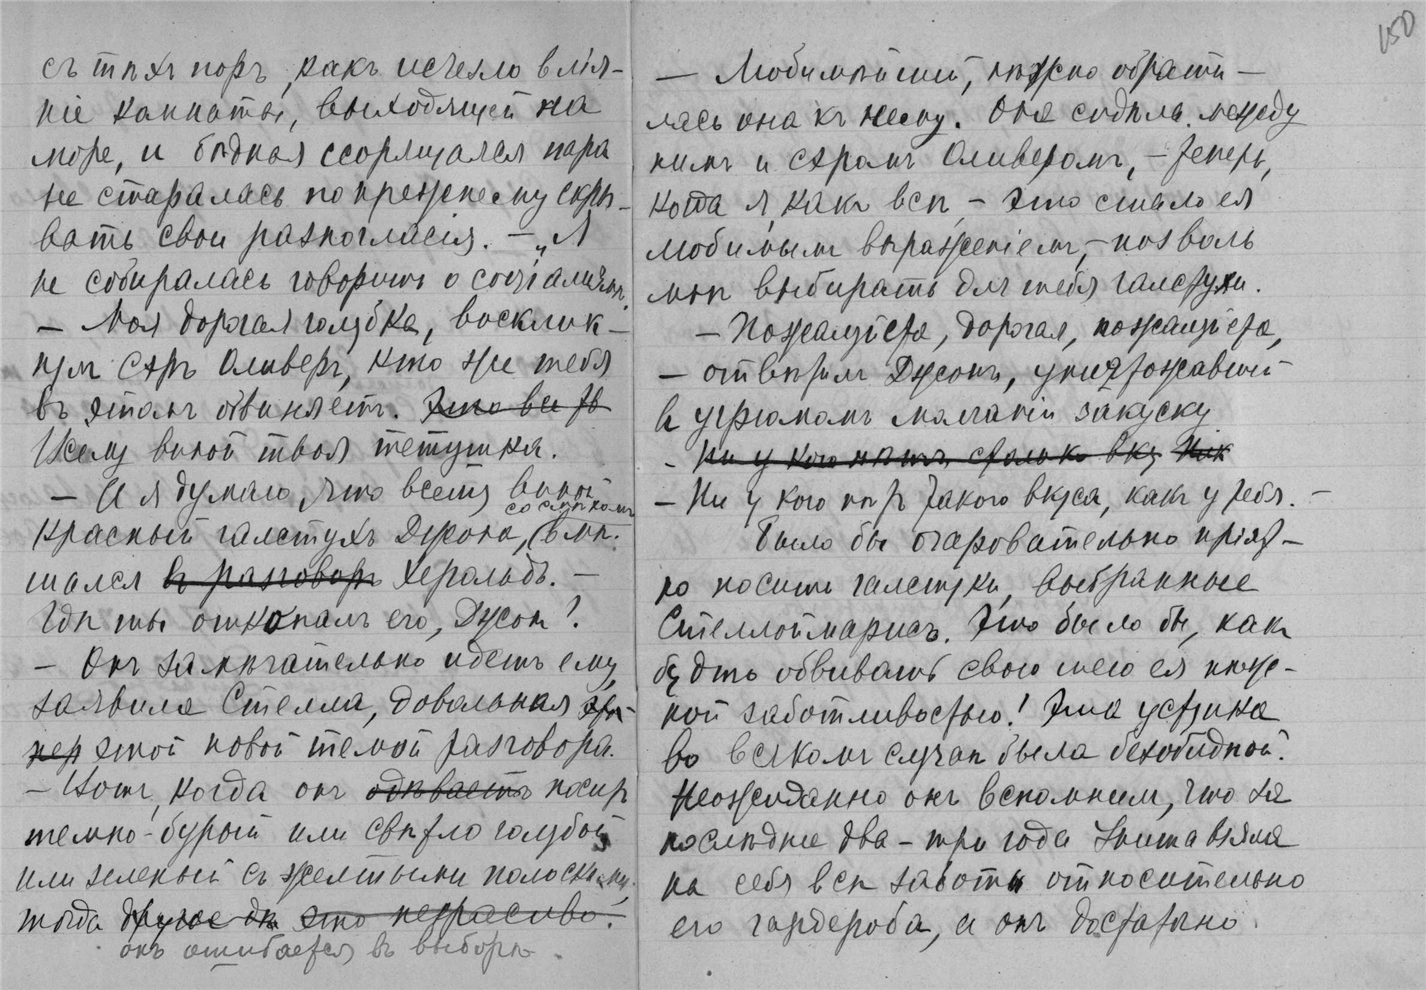 съ тѣхъ поръ, какъ исчезло влія-
ніе комнаты, выходящей на
море, и бѣдная ссорящаяся пара
не старалась попрежнему скры-
вать свои разногласія. — „Я
не собиралась говорить о соціализмѣ.
— Моя дорогая голубка, восклик-
нулъ сэръ Оливеръ, кто же тебя
въ этомъ обвиняетъ. Это все тв
Всему виной твоя тетушка.
— А я думаю, что всему виной
красный галстухъ Джона, со смѣхомъ вмѣ-
шался въ разговоръ Херальдъ. —
Гдѣ ты откопалъ его, Джон?
— Онъ замѣчательно идетъ ему,
заявила Стелла, довольная
этой новой темой разговора.
— Вотъ, когда онъ одѣваетъ носитъ
темно-бурый или свѣтло голубой
или зеленый съ желтыми полосками,
тогда это некрасиво.
онъ ошибается въ выборѣ.
150
— Любимѣйшій, нѣжно обрати-
лась она къ нему. Она сидѣла между
нимъ и сэромъ Оливеромъ, — теперь,
когда я, какъ всѣ, — это стало ея
любимымъ выраженіемъ, — позволь
мнѣ выбирать для тебя галстухи.
— Пожалуйста, дорогая, пожалуйста,
— отвѣтилъ Джонъ, уничтожавшій
въ угрюмомъ молчаніи закуску
- Ни у кого нѣтъ столько вку Ник
— Ни у кого нѣтъ такого вкуса, какъ у тебя. —
Было бы очаровательно пріят-
но носить галстуки, выбранные
Стеллоймарисъ. Это было бы, какъ
будто обвивать свою шею ея нѣж-
ной заботливостью! Эта уступка
во всякомъ случаѣ была безобидной.
Неожиданно онъ вспомнилъ, что за
послѣдніе два-три года Унита взяла
на себя всѣ заботы относительно
его гардероба, а онъ достаточно